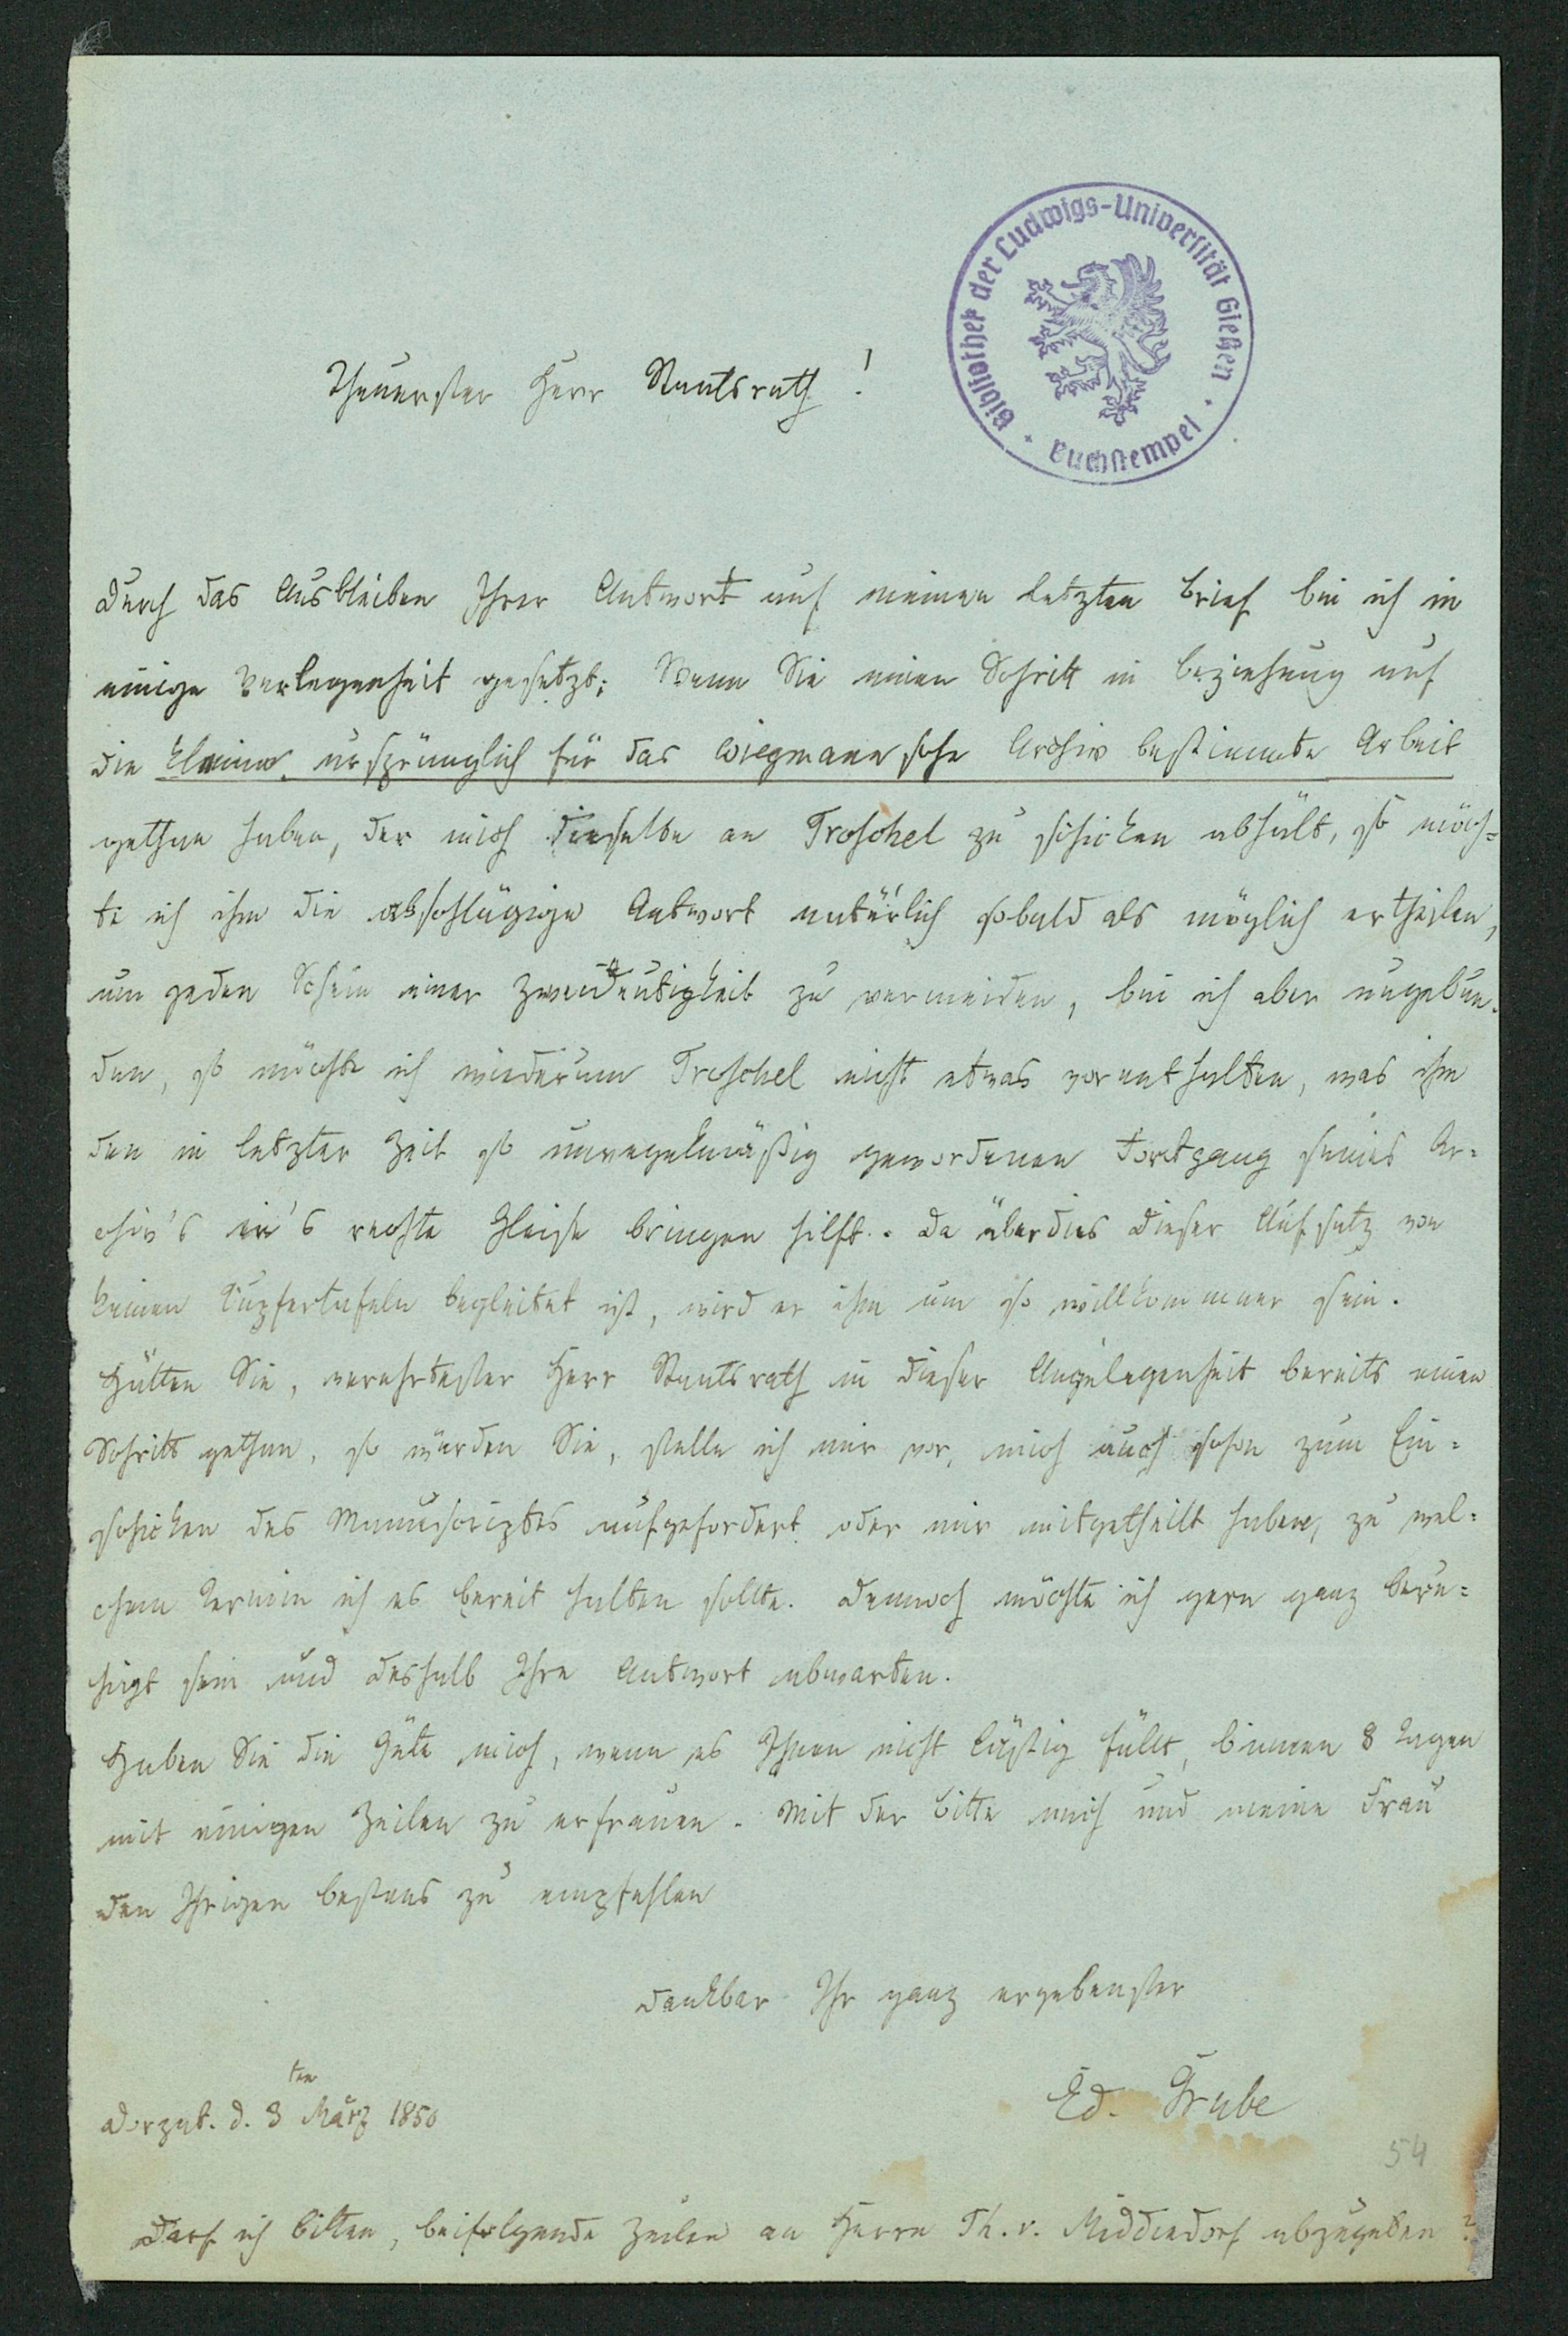 Bibliothek der Ludwigs-Universität Gießen
Buchstempel
Theuerster Herr Staatsrath!
Durch das Ausbleiben Ihrer Antwort auf meinen letzten Brief bin ich in
einige Verlegenheit gesetzt; Wenn Sie einen Schritt in Beziehung auf
die kleine, ursprünglich für das Wiegmannsche Archiv bestimmte Arbeit
gethan haben, der mich dieselbe an Troschel zu schicken abhält, so möch=
te ich ihm die abschlägige Antwort natürlich sobald als möglich ertheilen,
um jeden Schein einer Zweideutigkeit zu vermeiden, bin ich aber ungebun=
den, so möchte ich wiederum Troschel nicht etwas vorenthalten, was ihm
den in letzter Zeit so unregelmäßig gewordenen Fortgang seines Ar=
chiv's in's rechte Gleise bringen hilft. Da überdies dieser Aufsatz von
keinen Kupfertafeln begleitet ist, wird er ihm um so willkommner sein.
Hätten Sie, verehrtester Herr Staatsrath in dieser Angelegenheit bereits einen
Schritt gethan, so würden Sie, stelle ich mir vor, mich auch schon zum Ein=
schicken des Manuscriptes aufgefordert oder mir mitgetheilt haben, zu wel=
chem Termin ich es bereit halten sollte. Dennoch möchte ich gern ganz beru=
higt sein und deshalb Ihre Antwort abwarten.
Haben Sie die Güte mich, wenn es Ihnen nicht lästig fällt, binnen 8 Tagen
mit einigen Zeilen zu erfreuen. Mit der Bitte mich und meine Frau
den Ihrigen bestens zu empfehlen
dankbar Ihr ganz ergebenster
Ed. Grube
Dorpat. d. 3ten März 1850
54
Darf ich bitten, beifolgende Zeilen an Herrn Th. v. Middendorf abzugeben?